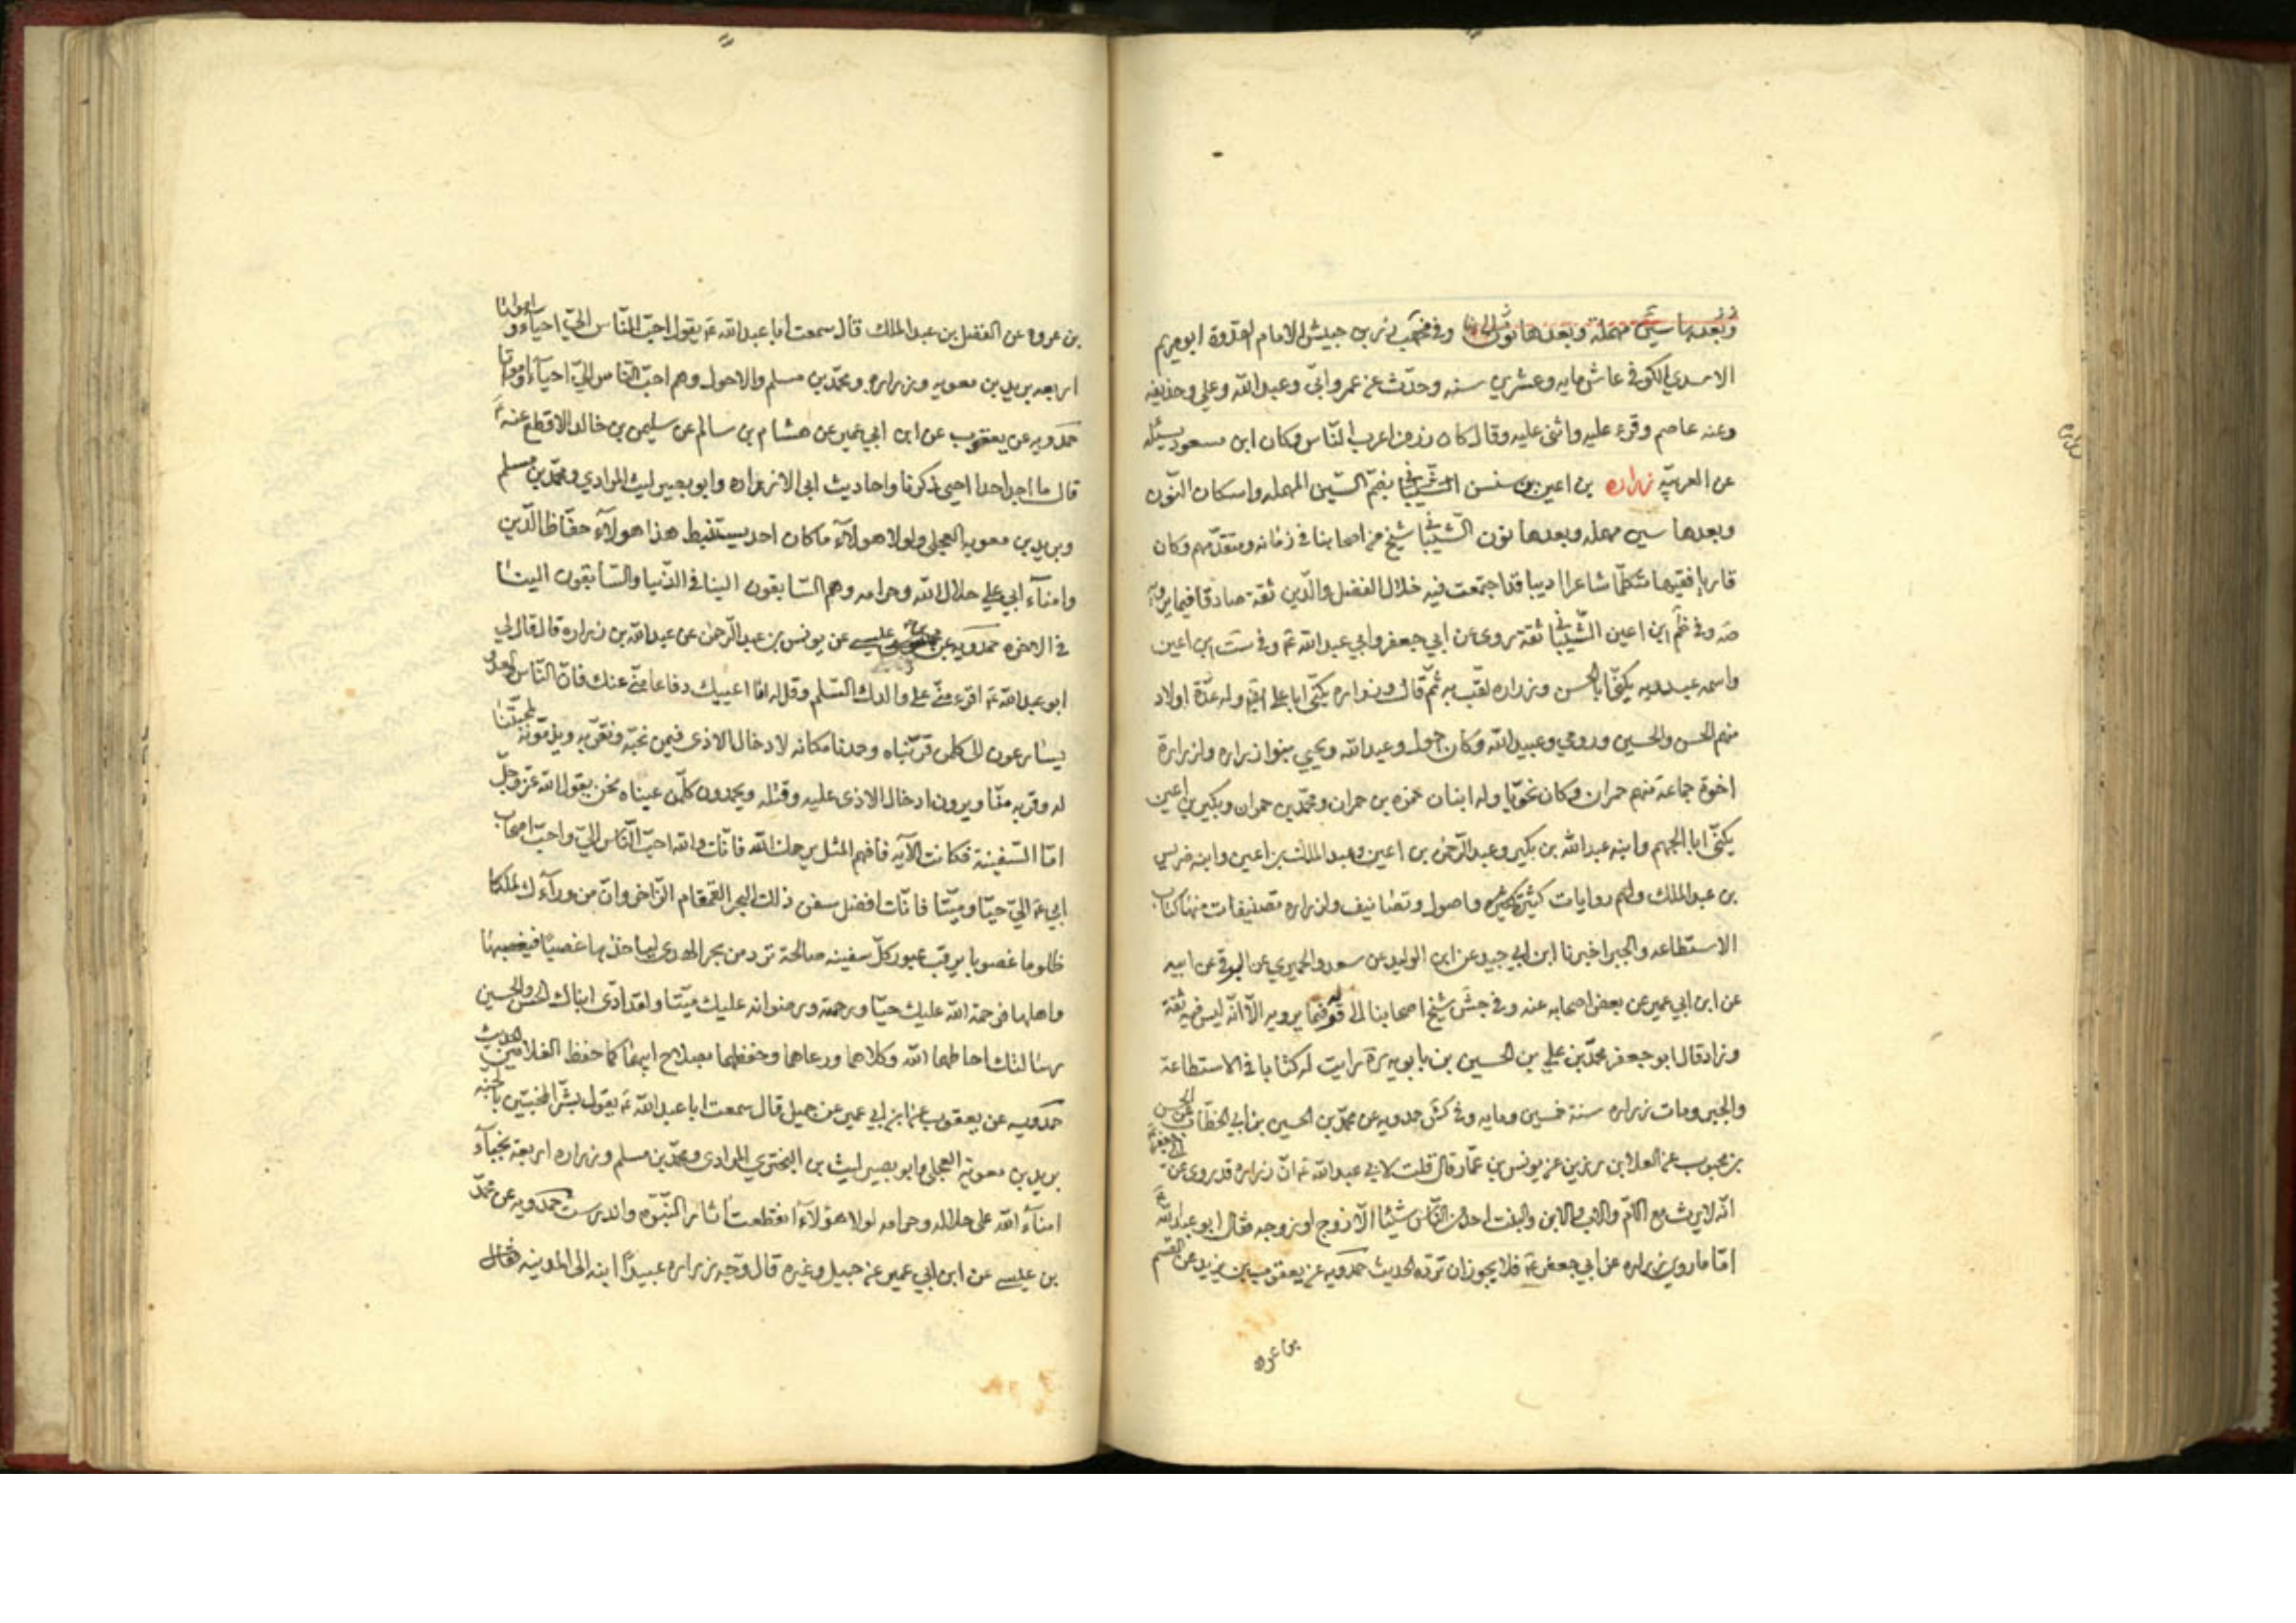 وبعدها سين مهملة وبعدها نون وفي مخهب زر بن حبيش الامام القدوة ابو مريم
الاسدي الكوفي عاش مايه وعشرين سنه وحدّث عن عمر وابيّ وعبد الله وعلي وحذيفه
وعنه عاصم وقرء عليه واثنى عليه وقال كان زر من اعرب النّاس وكان ابن مسعود يسئله
عن العربيّه زراره بن اعين بن سنسن الشّيباني بضمّ السّين المهمله واسكان النّون
وبعدها سين مهمله وبعدها نون الشّيباني شيخ من اصحابنا في زمانه ومتقدّمهم وكان
قاريا فقيها متكلّما شاعرا اديبا قد اجتمعت فيه خلال الفضل والدّين ثقة صادقا فيما يرويه
صه وفي ظم ابن اعين الشّيباني ثقة روى عن ابي جعفر وابي عبد الله عم وفي ست ابن اعين
واسمه عبد ربه يكنّى ابا الحسن وزراره لقب به ثمّ قال وزراره يكنّى ابا علي ايضا وله عدّة اولاد
منهم الحسن والحسين ورومي وعبيد الله وكان احول وعبد الله ويحيي بنوا زراره ولزرارة
اخوة جماعة منهم حمران وكان نحويّا وله ابنان حمزه بن حمران ومحمّد بن حمران وبكير بن اعين
يكنّى ابا الجهم وابنه عبد الله بن بكير وعبد الرّحمن بن اعين وعبد الملك بن اعين وابنه ضريس
بن عبد الملك ولهم روايات كثيرة واصول وتصانيف ولزراره تصنيفات منها كتاب
الاستطاعه والجبر اخبرنا ابن ابي جيد عن ابن الوليد عن سعد والحميري عن البرقي عن ابيه
عن ابن ابي عمير عن بعض اصحابه عنه وفي جش شيخ اصحابنا الى قوله فيما يرويه الّا انّه ليس فيه ثقة
وزاد قال ابو جعفر محمّد بن علي بن الحسين بن بابويه ره رايت له كتابا في الاستطاعة
والجبر ومات زراره سنة خمسين ومايه وفي كش حمدويه عن محمّد بن الحسين بن ابي الخطّاب عن الحسن
بن محبوب عن العلا بن رزين عن يونس بن عمّار قال قلت لابي عبد الله عم انّ زراره قد روى عن ابي جعفر عم
انّه لا يرث مع الامّ والاب والابن والبنت احد من النّاس شيئا الّا زوج او زوجه فقال ابو عبد الله عم
امّا ما روى زراره عن ابي جعفر عم فلا يجوز ان تردّه الحديث حمدويه عن يعقوب بن يزيد عن القسم
بن عروه
بن عروه عن الفضل بن عبد الملك قال سمعت ابا عبد الله عم يقول احبّ النّاس اليّ احياء وامواتا
اربعه بريد بن معويه وزراره ومحمّد بن مسلم والاحول وهم احبّ النّاس اليّ احياء وامواتا
حمدويه عن يعقوب عن ابن ابي عمير عن هشام بن سالم عن سليمن بن خالد الاقطع عنه عم
قال ما اجد احدا احيى ذكرنا واحاديث ابي الا زراره وابو بصير ليث المرادي ومحمّد بن مسلم
وبريد بن معويه العجلي ولولا هولآء ما كان احد يستنبط هذا هولآء حفّاظ الدّين
وامنآء ابي علي حلال الله وحرامه وهم السّابقون الينا في الدّنيا والسّابقون الينا
في الاخره حمدويه عن محمد بن عيسى عن يونس بن عبد الرّحمن عن عبد الله بن زراره قال قال لي
ابو عبد الله عم اقرء منّي على والدك السّلم وقل له انّما اعيبك دفاعا منّي عنك فانّ النّاس والعدو
يسارعون الى كلّ من قرّبناه وحمدنا مكانه لادخال الاذى فيمن نحبّه ونقرّبه ويذمّونه لمحبّتنا
له وقربه منّا ويرون ادخال الاذى عليه وقتله ويحمدون كلّ من عيناه نحن يقول الله عزّ وجلّ
امّا السّفينة فكانت الآيه فافهم المثل يرحمك الله فانّك والله احبّ النّاس اليّ واحبّ اصحاب
ابي عم اليّ حيّا وميّتا فانّك افضل سفن ذلك البحر القمقام الزّاخر وانّ من ورآءك لملكا
ظلوما غصوبا يرقب عبور كلّ سفينه صالحة ترد من بحر الهدى لياخذها غصبا فيغصبها
واهلها فرحمة الله عليك حيّا ورحمته ورضوانه عليك ميّتا ولقد ادّى ابناك الحسن والحسين
رسالتك احاطهما الله وكلاهما ورعاهما وحفظهما بصلاح ابيهما كما حفظ الغلامين الحديث
حمدويه عن يعقوب عن ابن ابي عمير عن جميل قال سمعت ابا عبد الله عم يقول بشّر المخبتين بالجنه
بريد بن معوية العجلي وابو بصير ليث بن البختري المرادي ومحمّد بن مسلم وزراره اربعة نجبآء
امنآء الله على حلاله وحرامه لولا هؤلآء انقطعت اثار النّبوّه واندرست حمدويه عن محمّد
بن عيسى عن ابن ابي عمير عن جميل وغيره قال وجّه زراره عبيدًا ابنه الى المدينه فقال